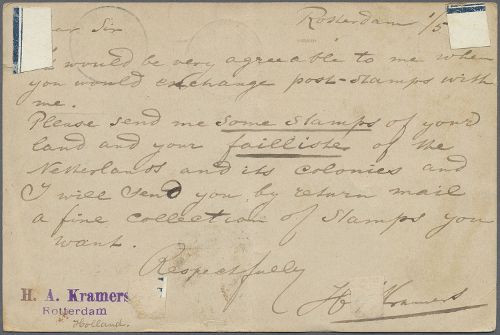 Rotterdam 1/5
Dear Sir
It would be very agreeable to me when
you would exchange post-stamps with
me.
Please send me some stamps of your
land and your faillishe of the
Netherlands and its colonies and
I will send you by return mail
a fine collection of stamps you
want.
Respectfully
H. A. Kramers
Rotterdam
Holland.
H Kramers